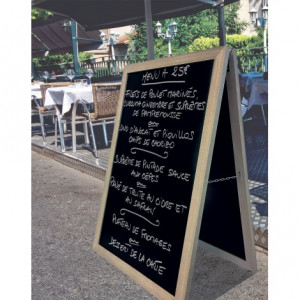 MENU A 25€
FILETS DE POULET MARINÉS,
CURCUMA GINGEMBRE ET SUPRÊMES
DE PAMPLEMOUSSE
DUO D'AVOCAT ET PIQUILLOS
CHIPS DE CHORIZO
SUPRÊME DE PINTADE SAUCE
AUX CÈPES
FILET DE TRUITE AU CIDRE ET
AU SAFRAN
PLATEAU DE FROMAGES
DESSERT DE LA CARTE